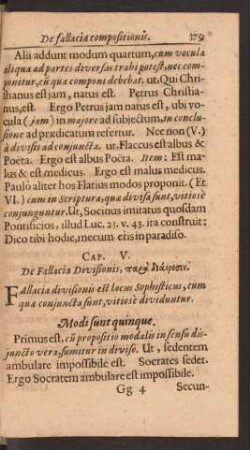 De fallacia compositionis. 179
Alii addunt modum quartum, cum vocula
aliqua ad partes diversas trahi potest, nec com-
ponitur, cũ qua componi debebat. ut, Qui Chri-
stianus est jam, natus est. Petrus Christia-
nus, est. Ergo Petrus jam natus est, ubi vo-
cula (jam) in majore ad subjectum, in conclu-
sione ad prædicatum refertur. Nec non (V.)
à divisis ad conjuncta. ut, Flaccus est albus &
Poëta. Ergo est albus Poëta. Item: Est ma-
lus & est medicus. Ergo est malus medicus.
Paulò aliter hos Flatius modos proponit. (Et
VI.) cum in Scriptura, quæ divisa sunt, vitiosè
conjunguntur. Ut, Socinus imitatus quosdam
Pontificios, illud Luc. 23. v. 43. ita construit:
Dico tibi hodie, mecum eris in paradiso.
CAP. V.
De Fallacia Divisionis, παρὰ διαίρεσιν.
Fallacia divisionis est locus Sophisticus, cum
quæ conjuncta sunt, vitiosè dividuntur.
Modi sunt quinque.
Primus est, cũ propositio modalis in sensu dis-
juncto vera, sumitur in diviso. Ut, sedentem
ambulare impossibile est. Socrates sedet.
Ergo Socratem ambulare est impossibile.
Gg 4 Secun-